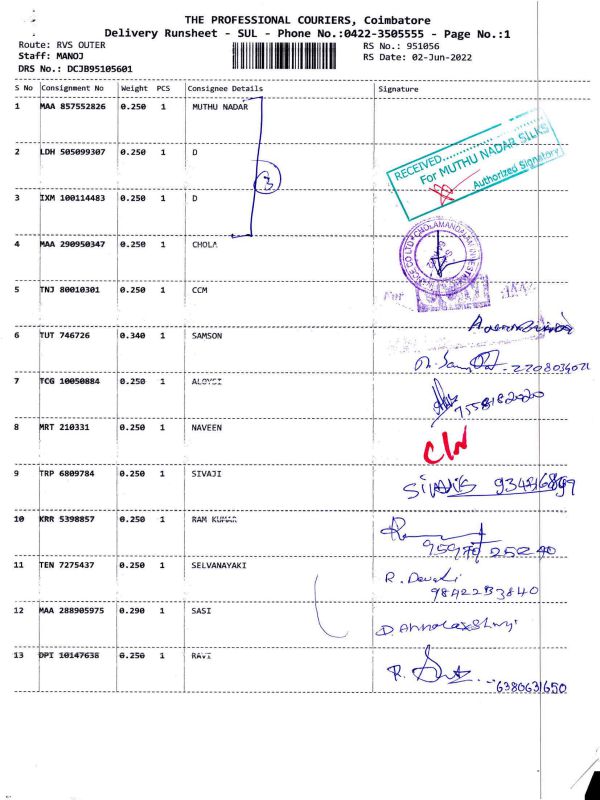 THE PROFESSIONAL COURIERS, Coimbatore
Delivery Runsheet - SUL - Phone No.:0422-3505555 - Page No.:1
Route: RVS OUTER
RS No.: 951056
Staff: MANOJ
RS Date: 02-Jun-2022
DRS No.: DCJB95105601
S No Consignment No Weight PCS Consignee Details Signature
1 MAA 857552826 0.250 1 MUTHU NADAR
RECEIVED..............
For MUTHU NADAR SILKS
Authorized Signatory
2 LDH 505099307 0.250 1 D
3
3 IXM 100114483 0.250 1 D
4 MAA 290950347 0.250 1 CHOLA
5 TNJ 80010301 0.250 1 CCM
For
6 TUT 746726 0.340 1 SAMSON
2708034021
7 TCG 10050884 0.250 1 ALOYSI
8 MRT 210331 0.250 1 NAVEEN
9 TRP 6809784 0.250 1 SIVAJI
10 KRR 5398857 0.250 1 RAM KUMAR
25240
11 TEN 7275437 0.250 1 SELVANAYAKI
R. Devaki
98422B3840
12 MAA 288905975 0.290 1 SASI
13 DPI 10147638 0.250 1 RAVI
R.
6380631650